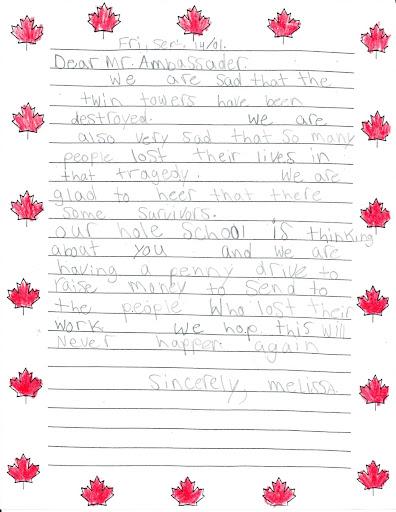 Fri, Sep. 14/01.
Dear Mr. Ambassader
We are sad that the
twin towers have been
destroyed. We are
also very sad that so many
people lost their lives in
that tragedy. We are
glad to heer that there
some survivors.
our hole School is thinking
about you and we are
having a penny drive to
raise money to send to
the people Who lost their
work. We hop this will
Never happen again
Sincerely, melissa.